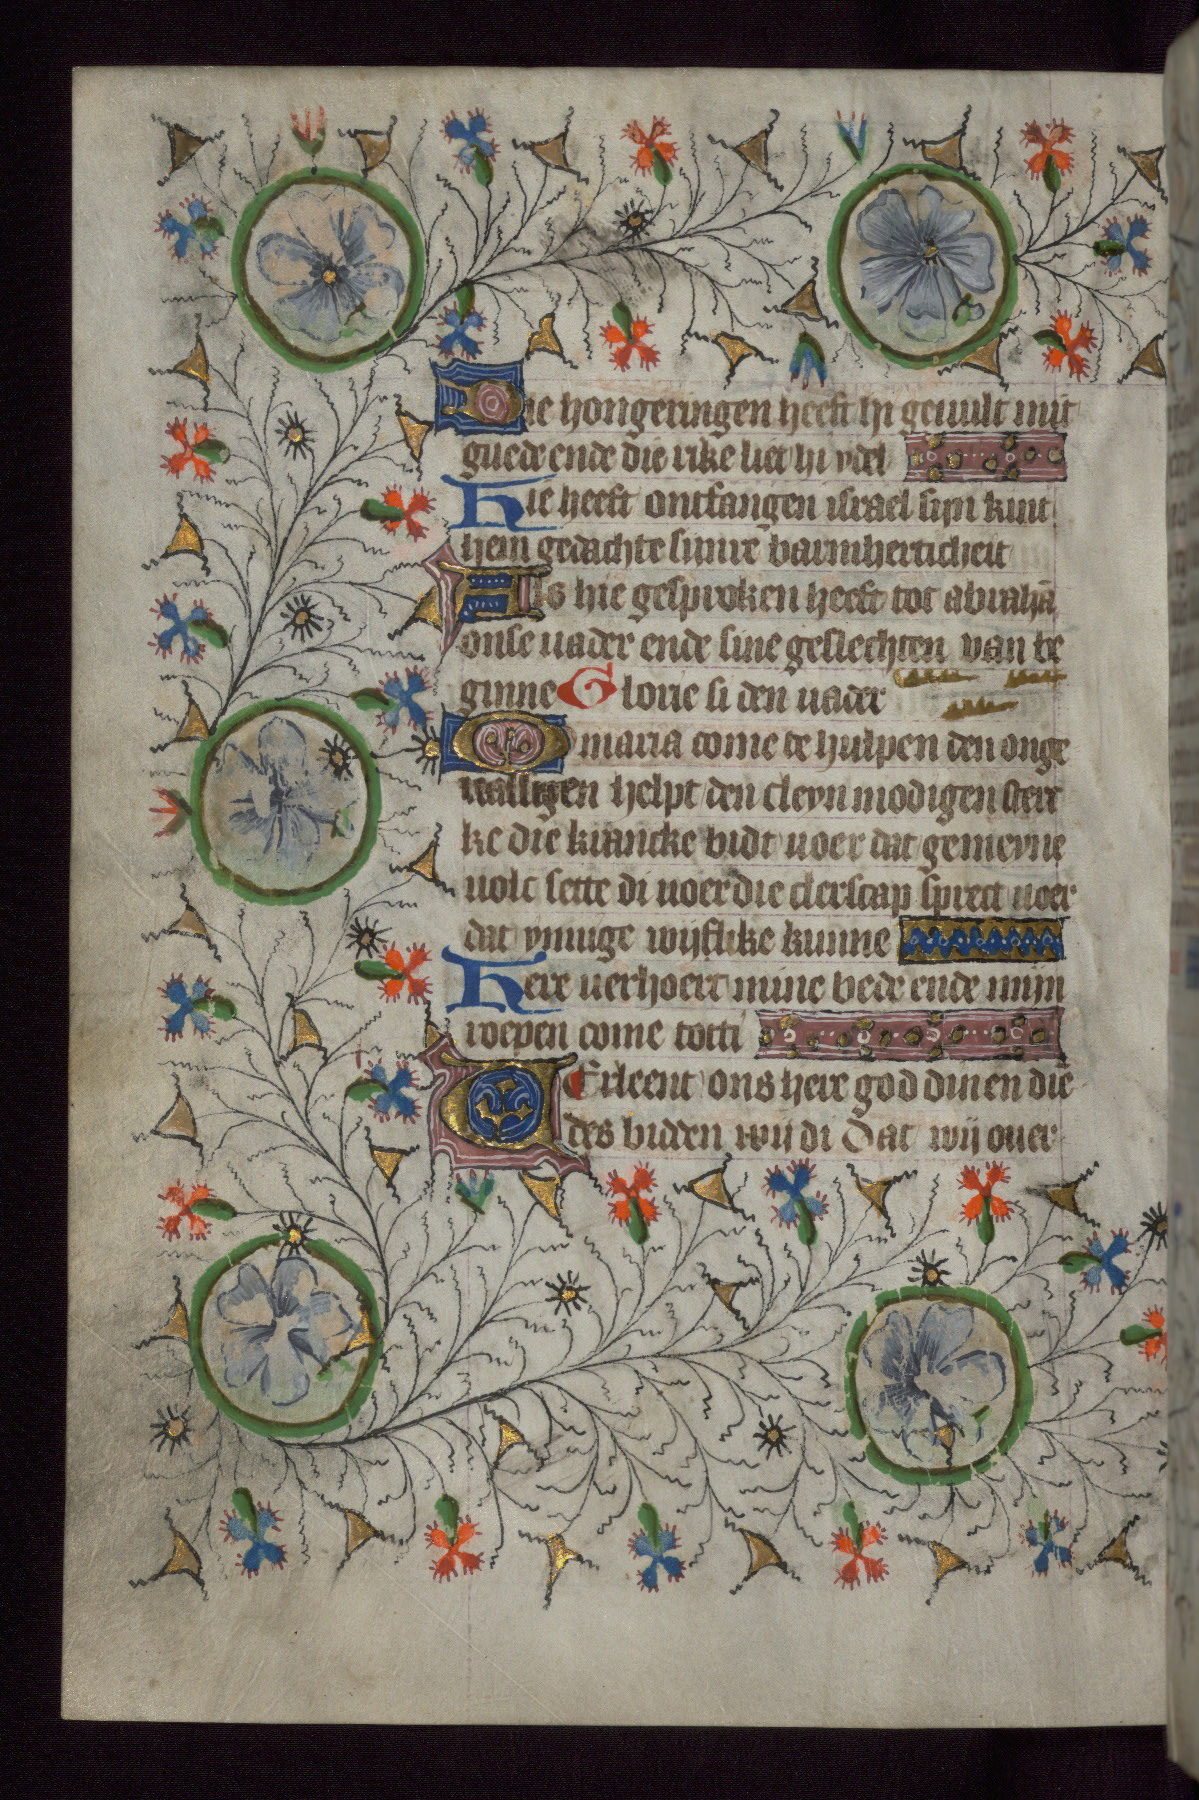 Die hongeringen heeft hi geuult mit
guede ende die rike liet hi ydel
Hie heeft ontfangen israel sijn kint
hem gedachte sijnre barmherticheit
Als hie gesproken heeft tot abrahā
onse uader ende sine geslechten van be
ginne Glorie si den uader
O maria come te hulpen den onge
ualligen helpt den cleynmodigen sterc
ke die krancke bidt uoer dat gemeyne
uolc sette di uoer die clerscap sprect uoer
dat ynnige wijflike kunne
Here uerhoert mine bede ende mijn
roepen come totti
Verleent ons here god dinen die
des bidden wij di Dat wij ouer